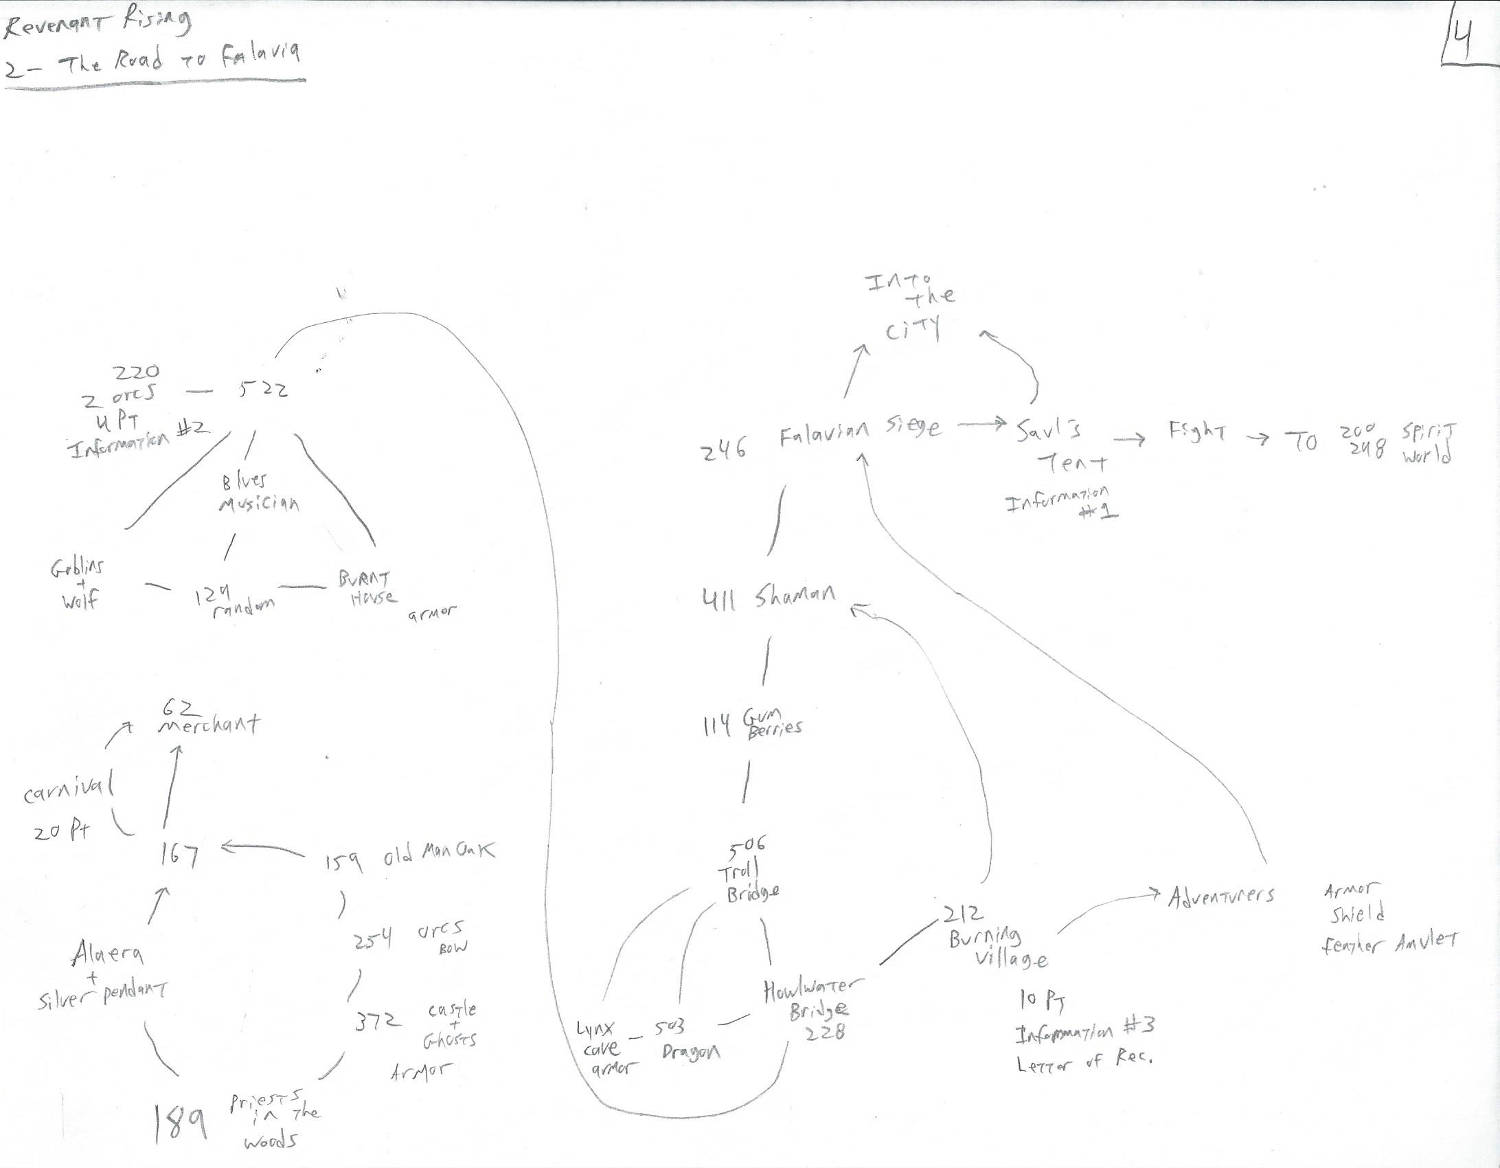 Revenant Rising
2- The Road to Falavia
4
Into
the
City
220
2 orcs
4 PT
Information #2
522
Blues
Musician
Goblins
+
Wolf
129
random
Burnt
House
armor
62
merchant
carnival
20 Pt
167
159 Old Man Oak
254 orcs
Bow
Alaera
+
silver pendant
372 castle
+
Ghosts
Armor
189 Priests
in the
woods
246 Falavian Siege
Saul's
Tent
Information
#1
Fight
To 200 Spirit
248 World
411 Shaman
114 Gum
Berries
506
Troll
Bridge
Lynx
cave
armor
503
Dragon
Howlwater
Bridge
228
212
Burning
Village
10 PT
Information #3
Letter of Rec.
Adventurers
Armor
Shield
Feather Amulet